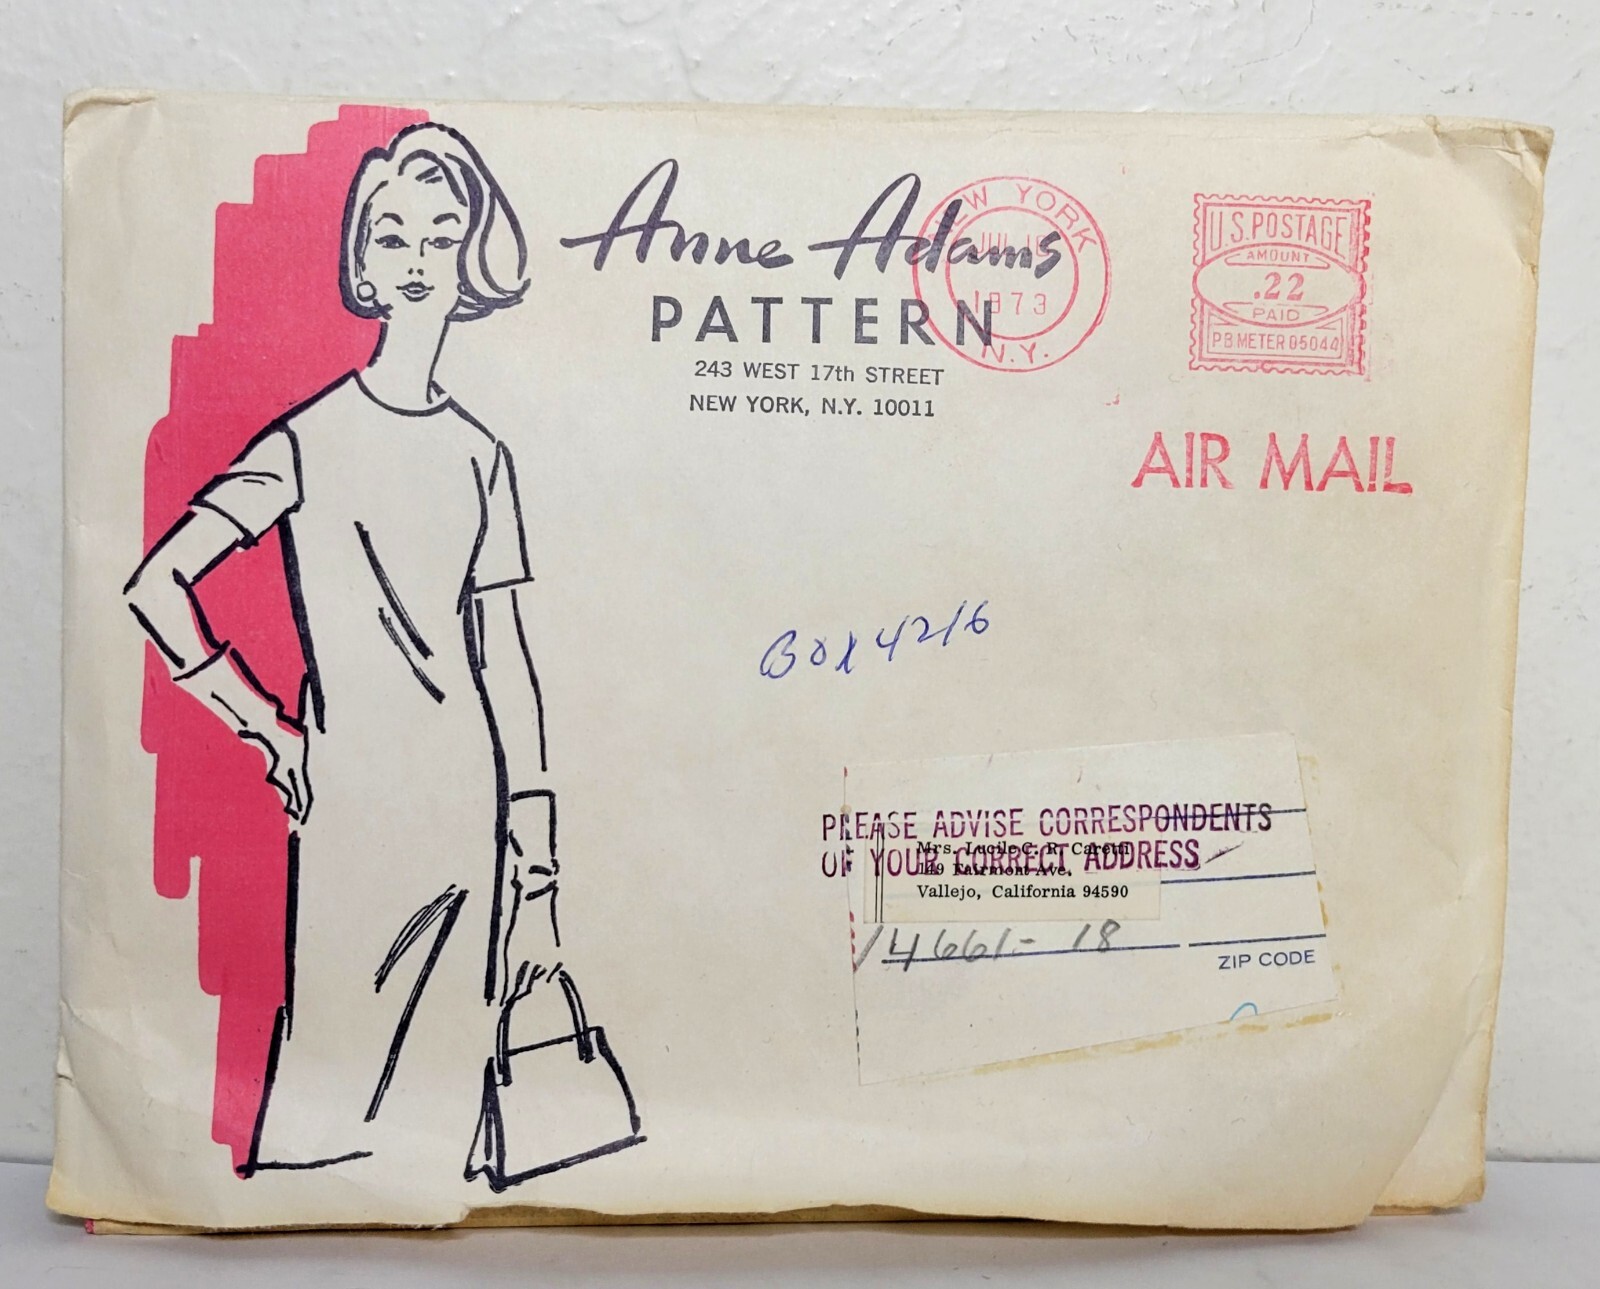 Anne Adams
PATTERN
243 WEST 17th STREET
NEW YORK, N.Y. 10011
NEW YORK
JUL
1973
N.Y.
U.S. POSTAGE
AMOUNT
.22
PAID
PB METER 05044
AIR MAIL
Box 4216
PLEASE ADVISE CORRESPONDENTS
OF YOUR CORRECT ADDRESS
Mrs. Lucile C. R. Caretti
149 Fairmont Ave.
Vallejo, California 94590
14661- 18
ZIP CODE